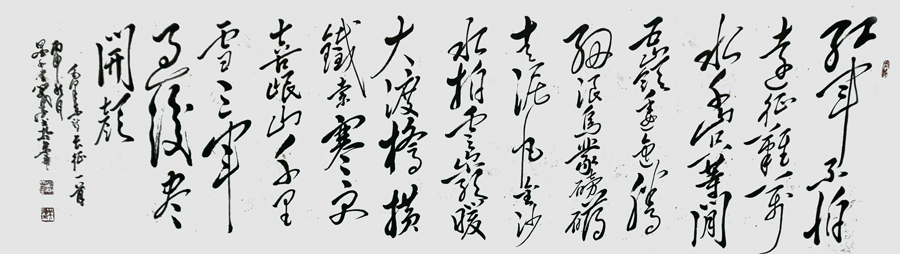 紅軍不怕
遠征難万
水千山只等閒
五嶺逶迤騰
細浪烏蒙磅礴
走泥丸金沙
水拍雲崖暖
大渡橋橫
鐵索寒更
喜岷山千里
雪三軍
過後盡
開顏
毛澤東詩長征一首
丙申